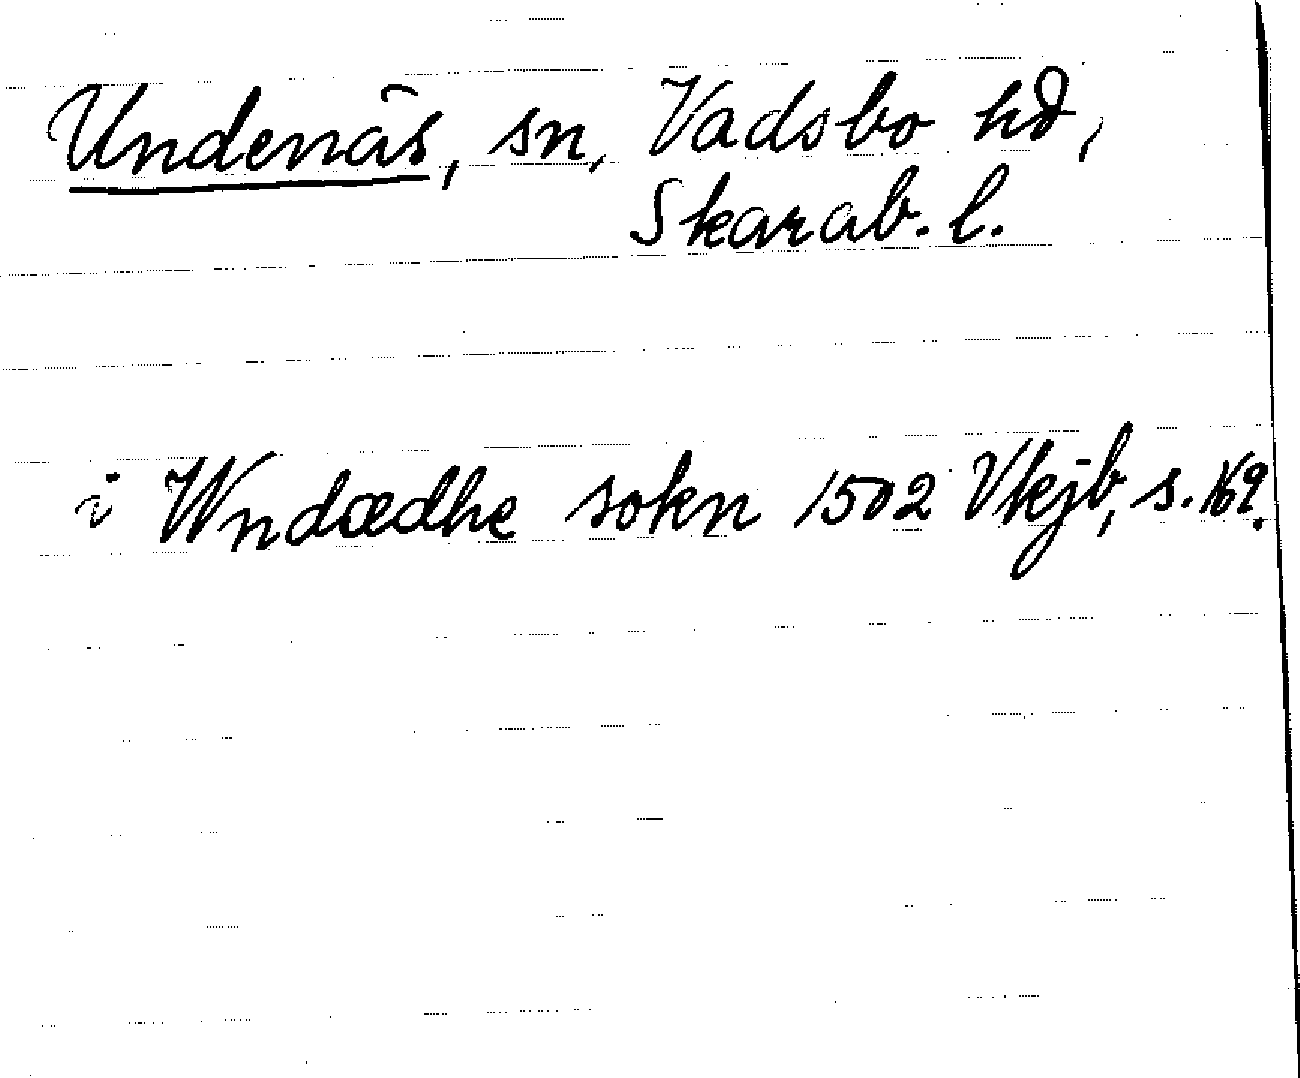 Undenäs, sn, Vadsbo hd,
Skarab. l.
i Wndædhe sokn 1502 Vkjb, s. 169.